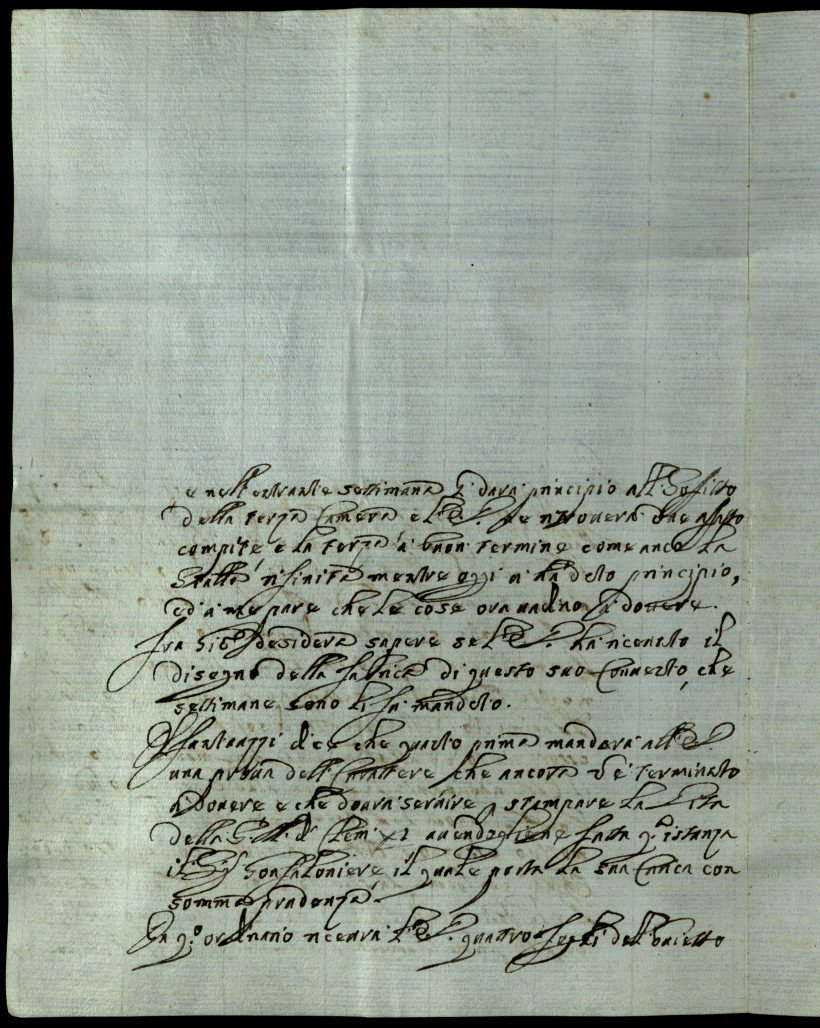 e nell'entrante settimana si darà principio all Soffitto
della terza Camera e l'E.V. ne ritroverà due affatto
compite e la terza a buon termine come anco la
Stalla rifinita mentre oggi vi ha dato principio,
ed a me pare che le cose ora vadino a dovere.
Fra Gio desidera sapere se l'E.V. ha ricevuto il
disegno della fabrica di questo suo Convento, che
settimane sono li fu mandato.
Mantuazzi dice che quanto prima mandarà all'E.V.
una prova dell Carattere che ancora è terminato
a dovere e che dovrà servire p stampare la Vita
della S.M. di Clem: XI avendogliene fatta q.ª istanza
il Sig Gonfaloniere il quale porta la sua Carica con
somma prudenza.
In q.º ordinario riceverà l'E.V. quattro fogli dell